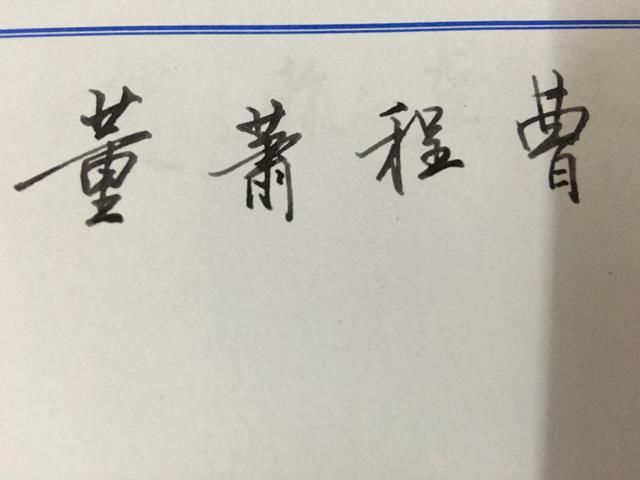 董 萧 程 曹